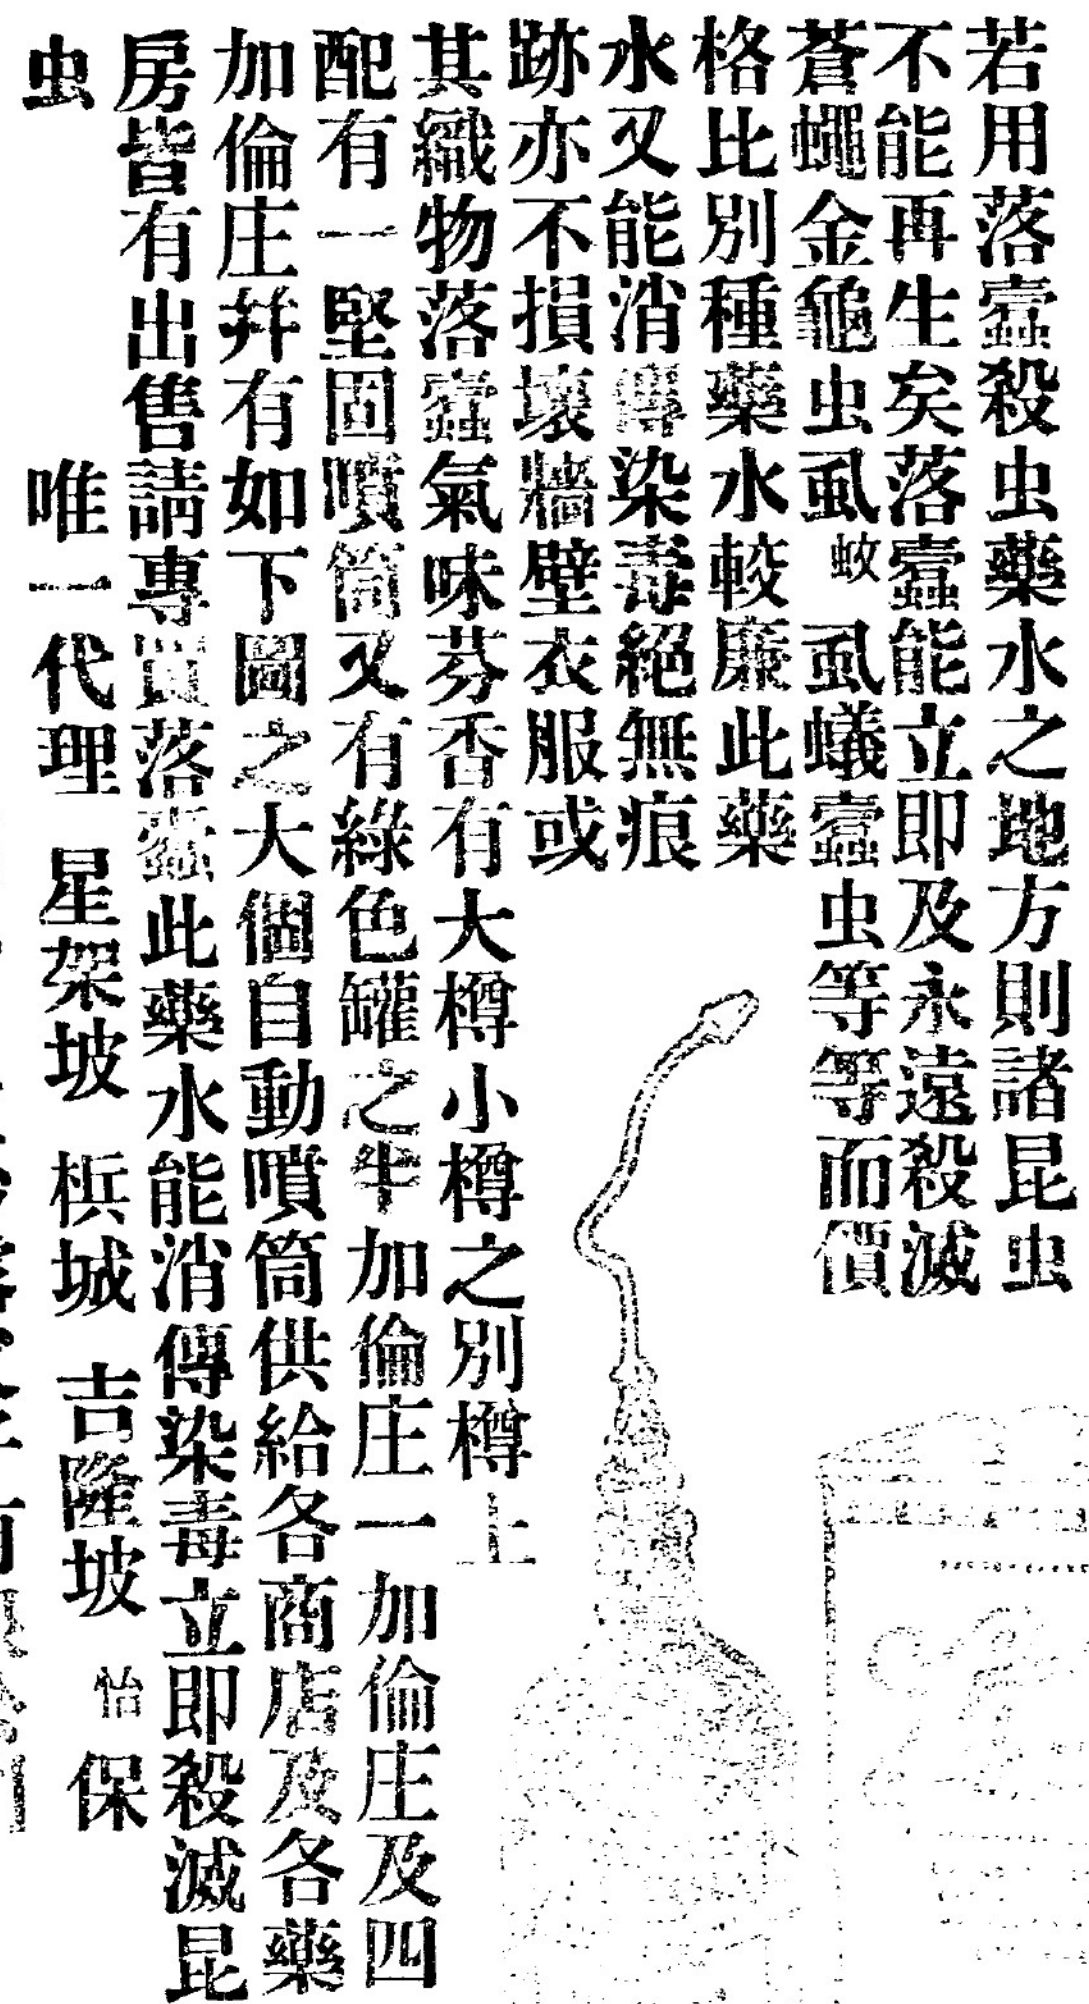 若用落蠧殺虫藥水之地方則諸昆虫
不能再生矣落蠧能立即及永遠殺滅
蒼蠅金龜虫虱蚊虱蟻蠧虫等等而價
格比別種藥水較廉此藥
水又能消傳染毒絕無痕
跡亦不損壞牆壁衣服或
其織物落蠧氣味芬香有大樽小樽之別樽上
配有一堅固噴筒又有綠色罐之半加倫庄一加倫庄及四
加倫庄并有如下圖之大個自動噴筒供給各商店及各藥
房皆有出售請專買落蠧此藥水能消傳染毒立即殺滅昆
虫 唯一代理 星架坡 梹城 吉隆坡 怡保